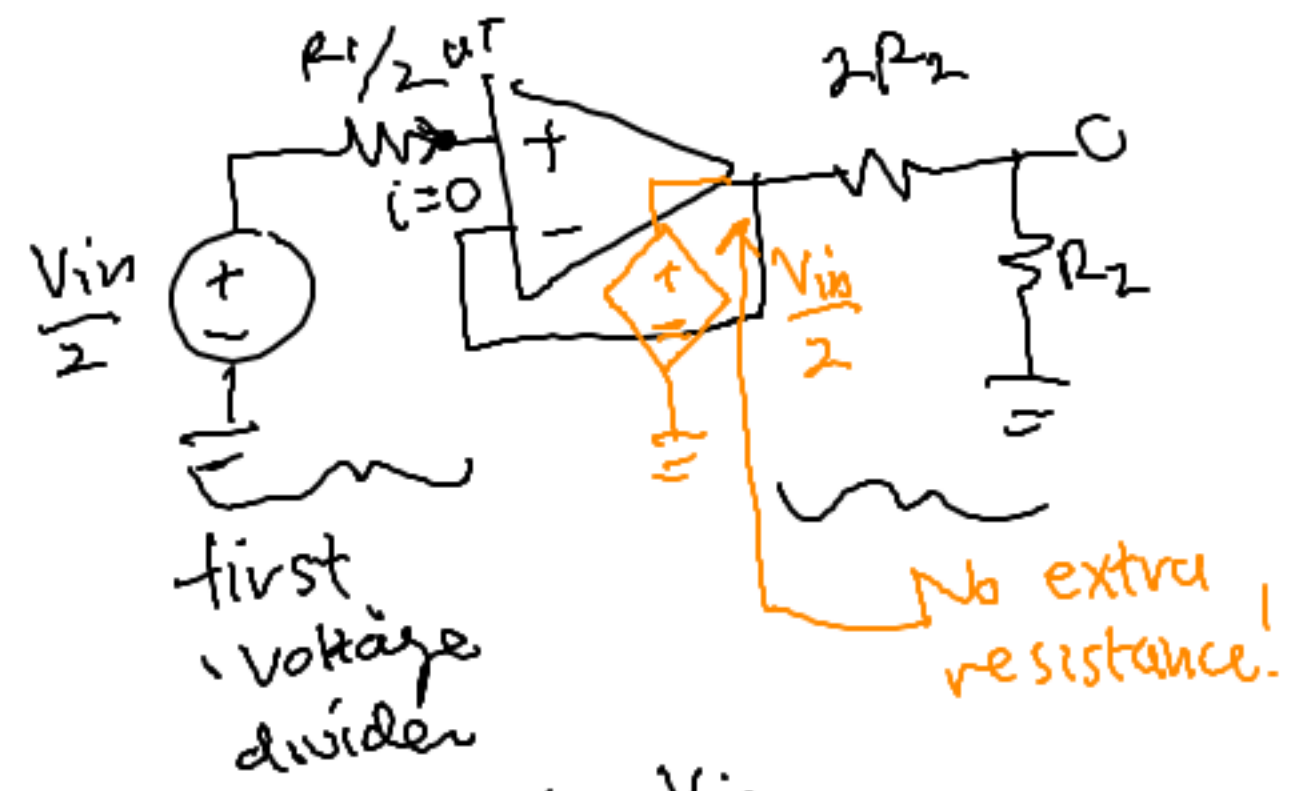 R1/2
u^T
2R2
+
i=0
−
Vin/2
+
−
+
−
Vin/2
O
R2
first
voltage
divider
No extra
resistance!
Vi